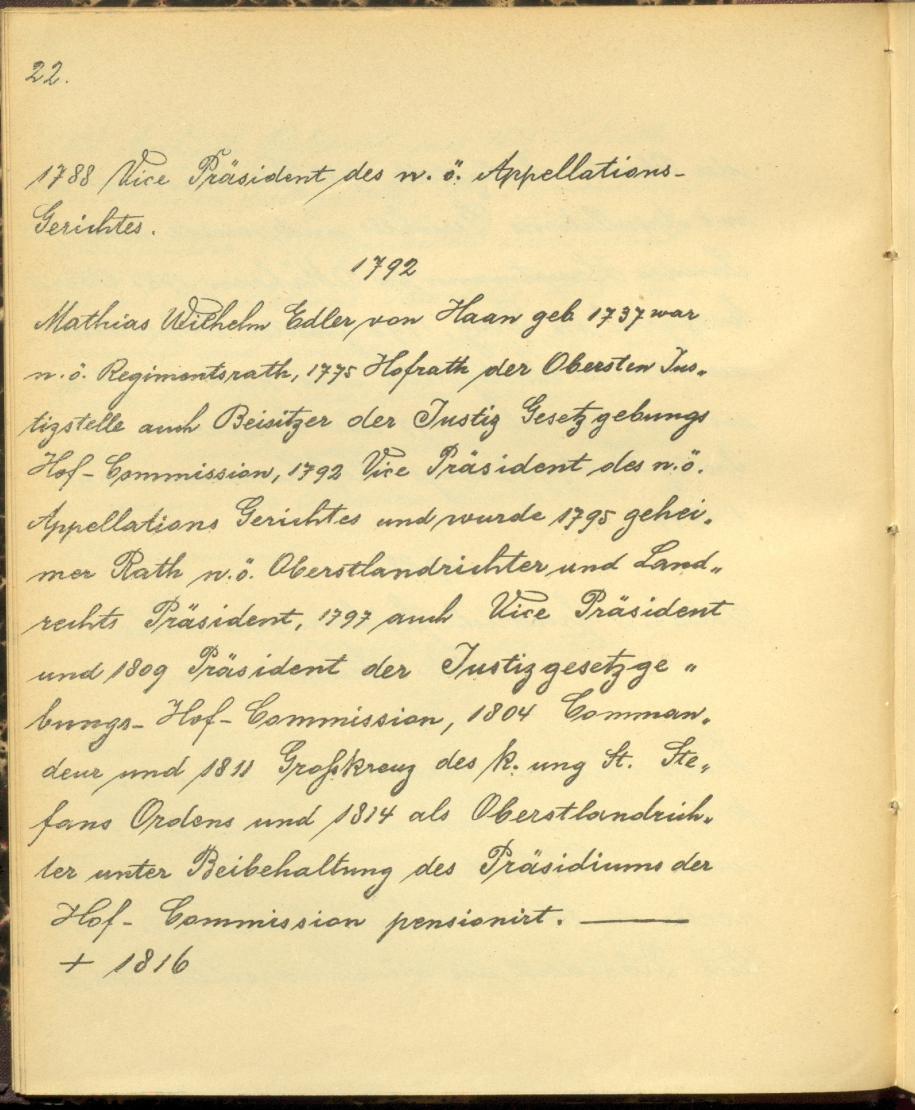 22.
1788 Vice Präsident des n. ö. Appellations-
Gerichtes.
1792
Mathias Wilhelm Edler von Haan geb. 1737 war
n. ö. Regimentsrath, 1775 Hofrath der Obersten Jus„
tizstelle auch Beisitzer der Justiz Gesetzgebungs
Hof-Commission, 1792 Vice Präsident des n. ö.
Appellations Gerichtes und wurde 1795 gehei„
mer Rath n. ö. Oberstlandrichter und Land„
rechts Präsident, 1797 auch Vice Präsident
und 1809 Präsident der Justizgesetzge „
bungs- Hof-Commission, 1804 Comman„
deur und 1811 Großkreuz des k. ung St. Ste„
fans Ordens und 1814 als Oberstlandrich„
ter unter Beibehaltung des Präsidiums der
Hof- Commission pensionirt. ———
+ 1816